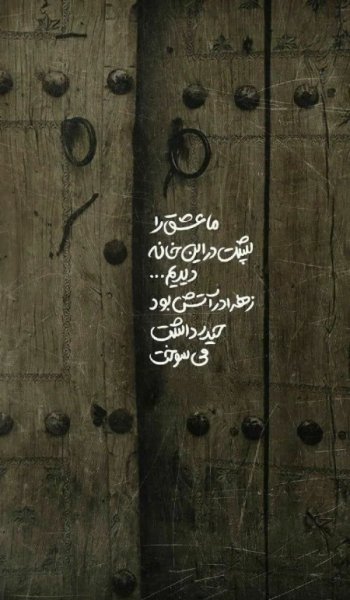 ما عشق را
پشت در این خانه
دیدیم...
زهرا در آتش بود
حیدر داشت
می سوخت